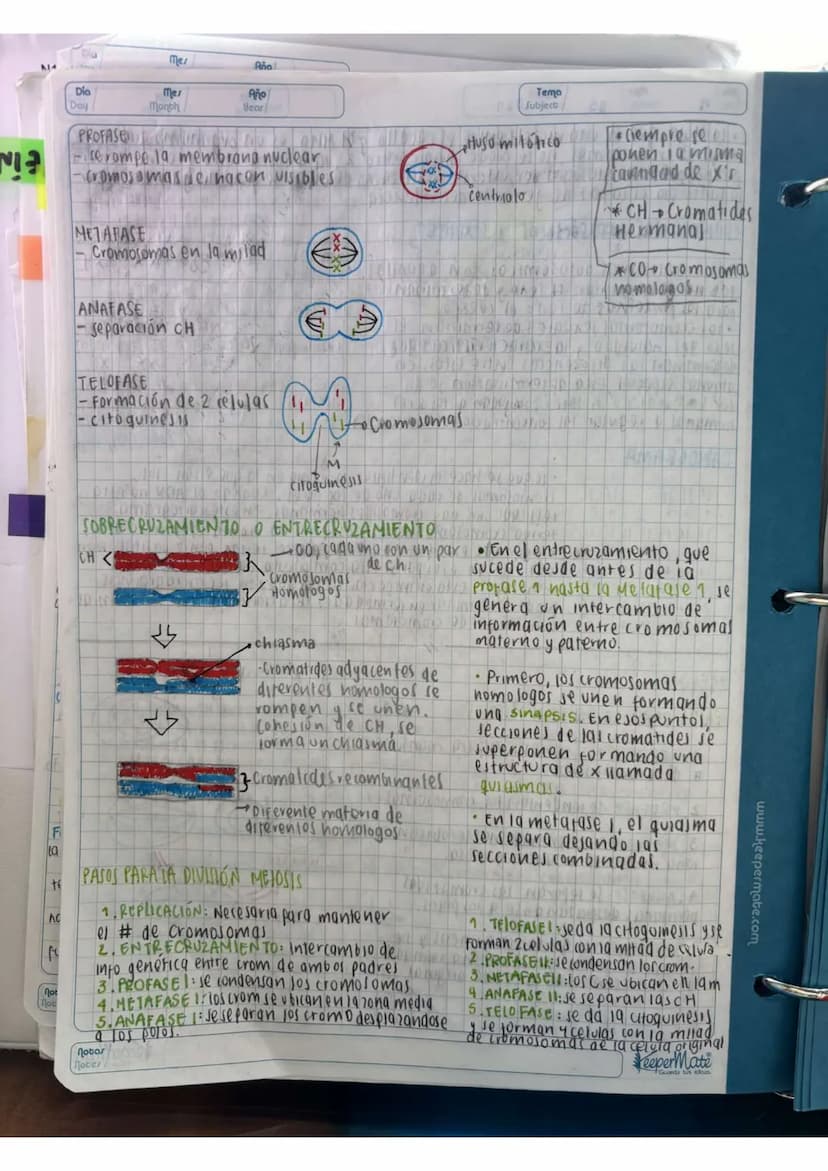 Mes
Año
Día
Day
Mes
Month
Año
Year
Tema
Subject
PROFASE
- se rompe la membrana nuclear
- Cromosomas se hacen visibles
Huso mitótico
centriolo
* Siempre se
ponen la misma
cantidad de X's
* CH → Cromatides
Hermanas
* CO → Cromosomas
homologos
METAFASE
- Cromosomas en la mitad
ANAFASE
- separación CH
TELOFASE
- Formación de 2 células
- citoquinesis
Cromosomas
M
citoquinesis
SOBRECRUZAMIENTO O ENTRECRUZAMIENTO
CH
cada uno con un par
de ch.
Cromosomas
Homologos
chiasma
- Cromatides adyacentes de
diferentes homologos se
rompen y se unen.
Cohesión de CH, se
forma un chiasma
Cromatides recombinantes
→ Diferente materia de
diferentes homologos
• En el entrecruzamiento, que
sucede desde antes de la
profase 1 hasta la Metafase 1, se
genera un intercambio de
información entre cromosomas
materno y paterno.
• Primero, los cromosomas
homologos se unen formando
una sinapsis. En esos puntos,
secciones de las cromatides se
superponen formando una
estructura de x llamada
quiasmas.
• En la metafase 1, el quiasma
se separa dejando las
secciones combinadas.
PASOS PARA LA DIVISIÓN MEIOSIS
1. REPLICACIÓN: Necesaria para mantener
el # de cromosomas
2. ENTRECRUZAMIENTO: Intercambio de
info genética entre crom de ambos padres
3. PROFASE I: se condensan los cromosomas
4. METAFASE I: los crom se ubican en la zona media
5. ANAFASE I: se separan los cromo desplazandose
a los polos.
1. TELOFASE I: se da la citoquinesis y se
forman 2 celulas con la mitad de celula.
2. PROFASE II: se condensan los crom.
3. METAFASE II: los C se ubican en la m
4. ANAFASE II: se separan las CH
5. TELOFASE: se da la citoquinesis
y se forman 4 celulas con la mitad
de cromosomas de la celula original
Notas
Notes
KeeperMate
Guarda tus ideas
www.keepermate.com